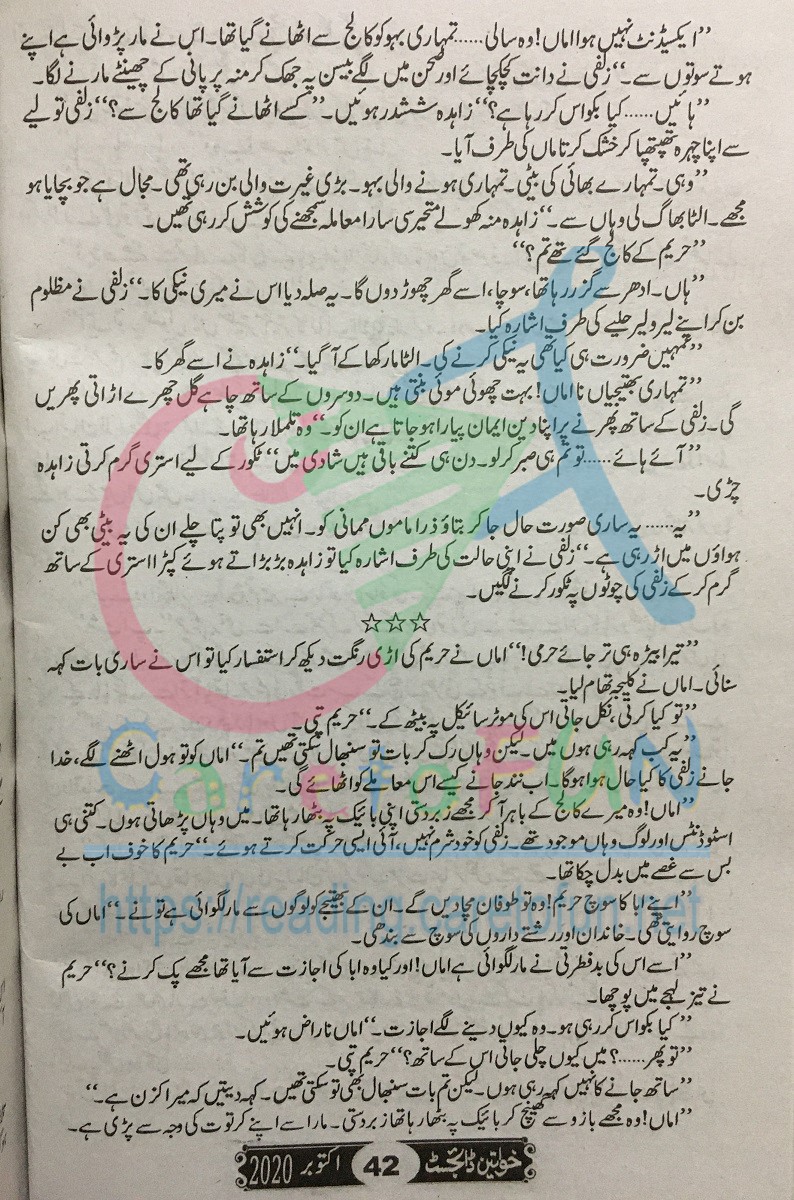 ”ایکسیڈنٹ نہیں ہوا اماں! وہ سالی...... تمہاری بہو کو کالج سے اٹھانے گیا تھا۔ اس نے مار پڑوائی ہے اپنے
ہوتے سوتوں سے۔“ زلفی نے دانت کچکچائے اور صحن میں لگے بیسن پہ جھک کر منہ پر پانی کے چھینٹے مارنے لگا۔
”ہائیں...... کیا بکواس کر رہا ہے؟“ زاہدہ ششدر ہوئیں۔ ”کسے اٹھانے گیا تھا کالج سے؟“ زلفی تولیے
سے اپنا چہرہ تھپتھپا کر خشک کرتا ماں کی طرف آیا۔
”وہی۔ تمہارے بھائی کی بیٹی۔ تمہاری ہونے والی بہو۔ بڑی غیرت والی بن رہی تھی۔ مجال ہے جو بچایا ہو
مجھے۔ الٹا بھاگ لی وہاں سے۔“ زاہدہ منہ کھولے متحیر سی سارا معاملہ سمجھنے کی کوشش کر رہی تھیں۔
”حریم کے کالج گئے تھے تم؟“
”ہاں۔ ادھر سے گزر رہا تھا، سوچا، اسے گھر چھوڑ دوں گا۔ یہ صلہ دیا اس نے میری نیکی کا۔“ زلفی نے مظلوم
بن کر اپنے لیرولیر حلیے کی طرف اشارہ کیا۔
”تمہیں ضرورت ہی کیا تھی یہ نیکی کرنے کی۔ الٹا مار کھا کے آ گیا۔“ زاہدہ نے اسے گھرکا۔
”تمہاری بھتیجیاں نا اماں! بہت چھوئی موئی بنتی ہیں۔ دوسروں کے ساتھ چاہے گل چھرے اڑاتی پھریں
گی۔ زلفی کے ساتھ پھرنے پر اپنا دین ایمان پیارا ہو جاتا ہے ان کو۔“ وہ تلملا رہا تھا۔
”آئے ہائے...... تو تم ہی صبر کر لو۔ دن ہی کتنے باقی ہیں شادی میں“ ٹکور کے لیے استری گرم کرتی زاہدہ
چڑی۔
”یہ...... یہ ساری صورت حال جا کر بتاؤ ذرا ماموں ممانی کو۔ انہیں بھی تو پتا چلے ان کی یہ بیٹی بھی کن
ہواؤں میں اڑ رہی ہے۔“ زلفی نے اپنی حالت کی طرف اشارہ کیا تو زاہدہ بڑبڑاتے ہوئے کپڑا استری کے ساتھ
گرم کر کے زلفی کی چوٹوں پہ ٹکور کرنے لگیں۔
☆☆☆
”تیرا بیڑہ ہی تر جائے حرمی!“ اماں نے حریم کی اڑی رنگت دیکھ کر استفسار کیا تو اس نے ساری بات کہہ
سنائی۔ اماں نے کلیجہ تھام لیا۔
”تو کیا کرتی، نکل جاتی اس کی موٹر سائیکل پہ بیٹھ کے۔“ حریم تپی۔
”یہ کب کہہ رہی ہوں میں۔ لیکن وہاں رک کر بات تو سنبھال سکتی تھیں تم۔“ اماں کو تو ہول اٹھنے لگے، خدا
جانے زلفی کا کیا حال ہوا ہوگا۔ اب نند جانے کیسے اس معاملے کو اٹھائے گی۔
”اماں! وہ میرے کالج کے باہر آ کر مجھے زبردستی اپنی بائیک پہ بٹھا رہا تھا۔ میں وہاں پڑھاتی ہوں۔ کتنی ہی
اسٹوڈنٹس اور لوگ وہاں موجود تھے۔ زلفی کو خود شرم نہیں، آئی ایسی حرکت کرتے ہوئے۔“ حریم کا خوف اب بے
بس سے غصے میں بدل چکا تھا۔
”اپنے ابا کا سوچ حریم! وہ تو طوفان مچا دیں گے۔ ان کے بھتیجے کو لوگوں سے مار لگوائی ہے تو نے۔“ اماں کی
سوچ روایتی تھی۔ خاندان اور رشتے داروں کی سوچ سے بندھی۔
”اسے اس کی بدفطرتی نے مار لگوائی ہے اماں! اور کیا وہ ابا کی اجازت سے آیا تھا مجھے پک کرنے؟“ حریم
نے تیز لہجے میں پوچھا۔
”کیا بکواس کر رہی ہو۔ وہ کیوں دینے لگے اجازت۔“ اماں ناراض ہوئیں۔
”تو پھر......؟ میں کیوں چلی جاتی اس کے ساتھ؟“ حریم تپی۔
”ساتھ جانے کا نہیں کہہ رہی ہوں۔ لیکن تم بات سنبھال بھی تو سکتی تھیں۔ کہہ دیتیں کہ میرا کزن ہے۔“
”اماں! وہ مجھے بازو سے کھینچ کر بائیک پہ بٹھا رہا تھا زبردستی۔ مار اسے اپنے کرتوت کی وجہ سے پڑی ہے۔
خواتین ڈائجسٹ 42 اکتوبر 2020
CaretoFUN
https://reading.caretofun.net